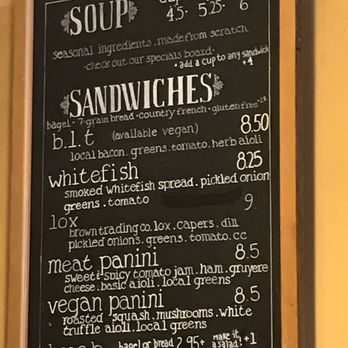 SOUP
4.5 5.25 6
seasonal ingredients. made from scratch
-check out our specials board-
• add a cup to any sandwich +4
SANDWICHES
bagel - 7-grain bread - country french - gluten free
b.l.t (available vegan) 8.50
local bacon. greens. tomato. herb aioli
whitefish 8.25
smoked whitefish spread. pickled onion
greens. tomato
lox 9
brown trading co. lox. capers. dill
pickled onions. greens. tomato. cc
meat panini 8.5
sweet & spicy tomato jam. ham. gruyere
cheese. basic aioli. local greens
vegan panini 8.5
roasted squash. mushrooms. white
truffle aioli. local greens
bagel or bread 2.95+ make it a salad! +1